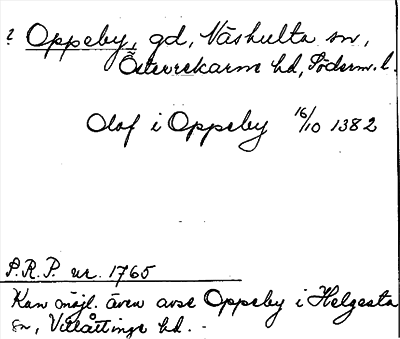 ? Oppeby, gd, Näshulta sn,
Österrekarne hd, Söderm. l.
Olof i Oppeby 16/10 1382
S.R.P. nr. 1765
Kan möjl. även avse Oppeby i Helgesta
sn, Villåttinge hd.